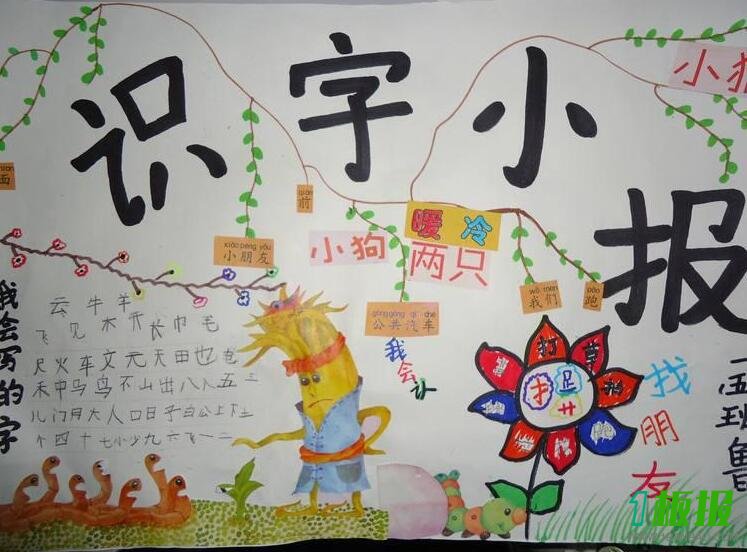 识字小报
小狗
miàn
面
qián
前
xiǎo péng yǒu
小朋友
小狗
暖 冷
两只
wǒ men
我们
pǎo
跑
gōng gòng qì chē
公共汽车
我会认
我会写的字
云 牛 羊
飞 见 木 开 长 巾 毛
尺 火 车 文 元 天 田 也
禾 中 马 鸟 不 山 出 八 入 五 三
儿 门 月 大 人 口 日 子 白 公 上 下 土
个 四 十 七 小 少 九 六 飞 一 二
打 草
扌 足 艹
找朋友
一五班鲁
板报